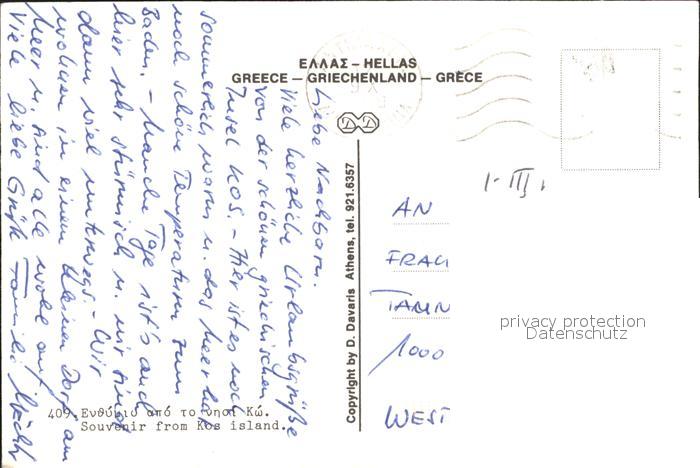 ΕΛΛΑΣ – HELLAS
GREECE – GRIECHENLAND – GRÈCE
Liebe Nachbarn.
Viele herzliche Urlaubsgrüße
von der schönen griechischen
Insel KOS. – Hier ist es noch
sommerlich warm u. das Meer hat
noch schöne Temperaturen zum
Baden. – Manche Tage ist's auch
hier sehr stürmisch u. wir sind
dann viel unterwegs. – Wir
wohnen in einem kleinen Dorf am
Meer u. sind alle wohl auf.
Viele liebe Grüße Familie
Copyright by D. Davaris Athens, tel. 921.6357
1-III
AN
FRAU
1000
WEST
privacy protection
Datenschutz
409 Ενθύμιο από το νησί Κώ.
Souvenir from Kos island.